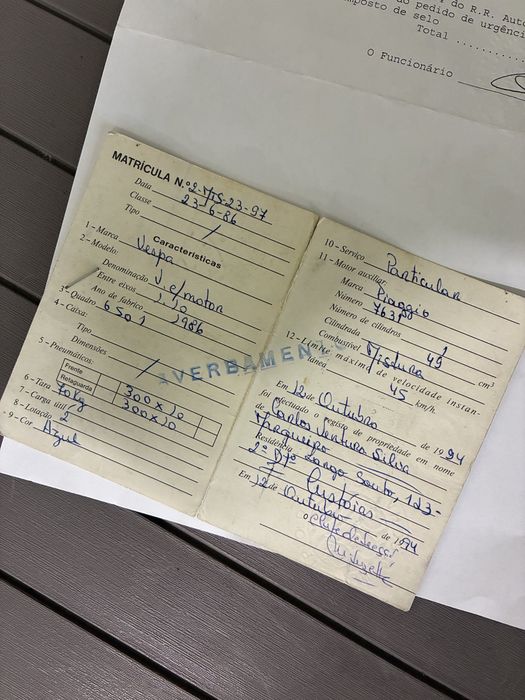 do R.R. Auto
do pedido de urgênci
mposto de selo
Total ..........
O Funcionário
MATRÍCULA N.º 2-MTS-23-97
Data 23-6-86
Classe
Tipo
Características
1 - Marca Vespa
2 - Modelo:
Denominação V c/motor
Entre eixos 1.10
Ano de fabrico 1986
3 - Quadro 6501
4 - Caixa:
Tipo
Dimensões
5 - Pneumáticos:
Frente 300 x 10
Retaguarda 300 x 10
6 - Tara 70 kg
7 - Carga útil
8 - Lotação 2
9 - Cor Azul
AVERBAMEN
10 - Serviço Particular
11 - Motor auxiliar:
Marca Piaggio
Número 7631
Número de cilindros 1
Cilindrada 49 cm3
Combustível Mistura
12 - Limite máximo de velocidade instan-
tânea 45 km/h.
Em 12 de Outubro de 1994
foi efectuado o registo de propriedade em nome
de Carlos Ventura Silva
Residência Largo Souto, 123-
2º Dtº
Custóias
Em 12 de Outubro de 1994
O